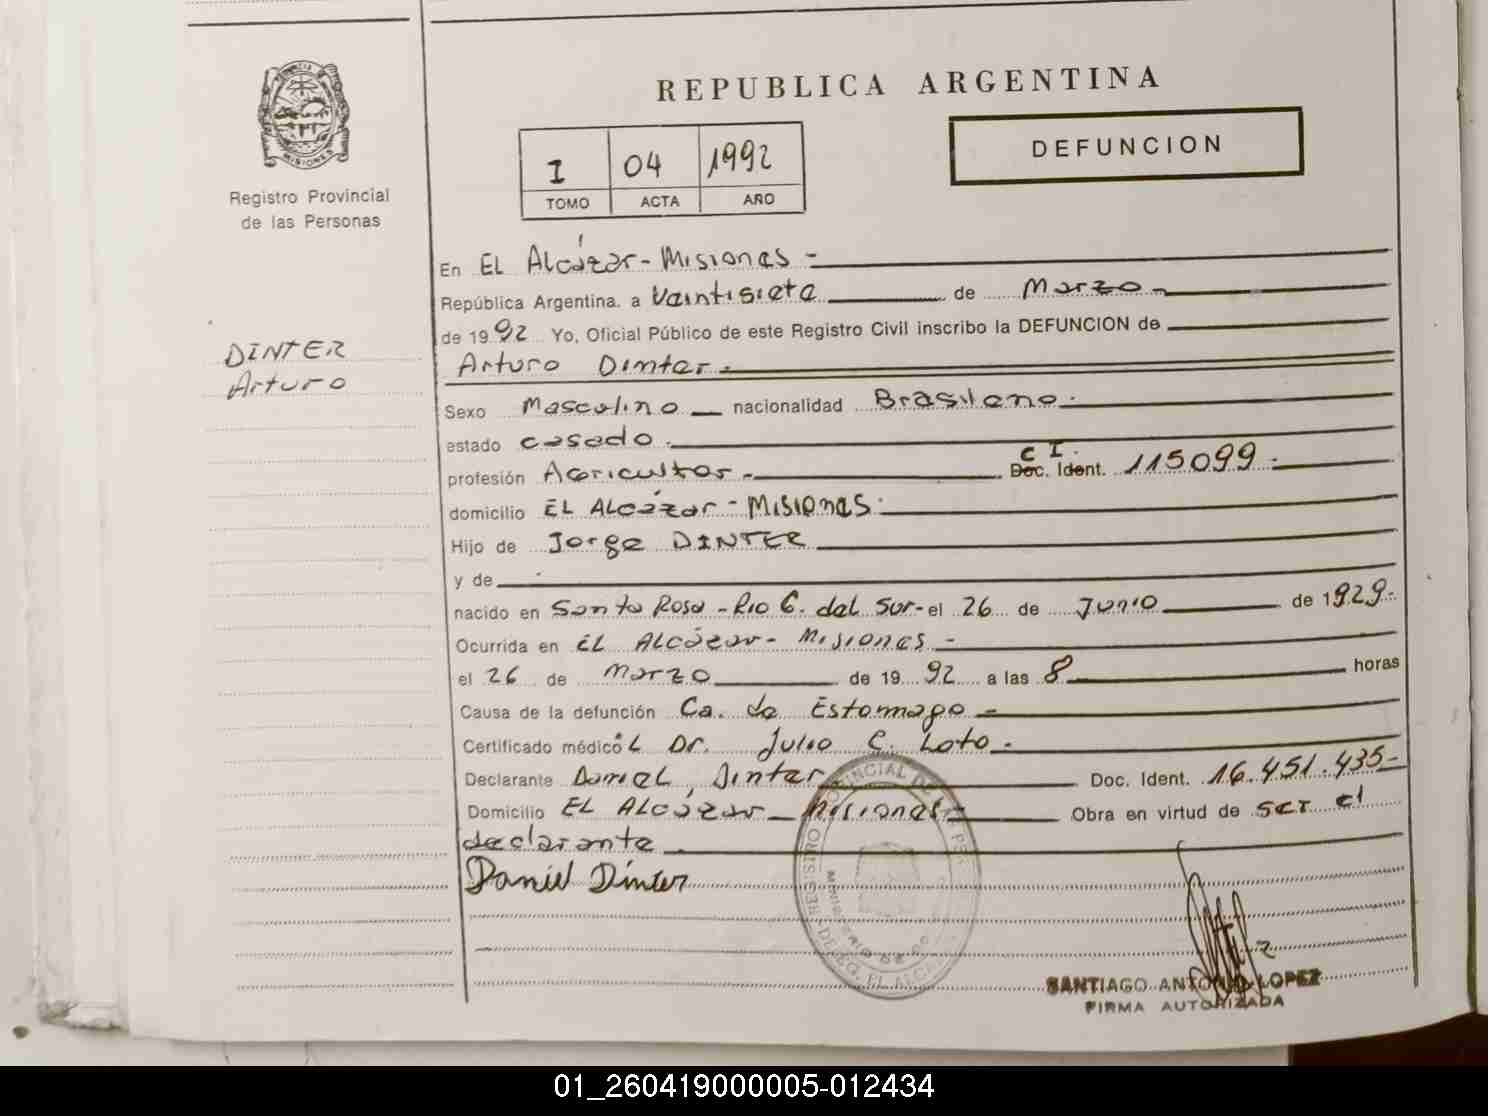 PROVINCIA DE MISIONES
Registro Provincial
de las Personas
DINTER
Arturo
REPUBLICA ARGENTINA
I 04 1992
TOMO ACTA AÑO
DEFUNCION
En EL Alcázar - Misiones -
República Argentina. a Veintisiete de Marzo -
de 1992 Yo, Oficial Público de este Registro Civil inscribo la DEFUNCION de
Arturo Dinter.-
Sexo Masculino nacionalidad Brasileno.
estado casado.
profesión Agricultor.- C I. Doc. Ident. 115099.-
domicilio EL Alcázar - Misiones.
Hijo de Jorge DINTER
y de
nacido en Santa Rosa - Rio G. del Sur - el 26 de Junio de 1929.-
Ocurrida en EL Alcázar - Misiones -
el 26 de Marzo de 1992 a las 8 horas
Causa de la defunción Ca. de Estomago -
Certificado médico L Dr. Julio C. Loto.-
Declarante Daniel Dinter Doc. Ident. 16.451.435-
Domicilio EL Alcázar - Misiones - Obra en virtud de ser el
declarante
Daniel Dinter
SANTIAGO ANTONIO LOPEZ
FIRMA AUTORIZADA
01_260419000005-012434